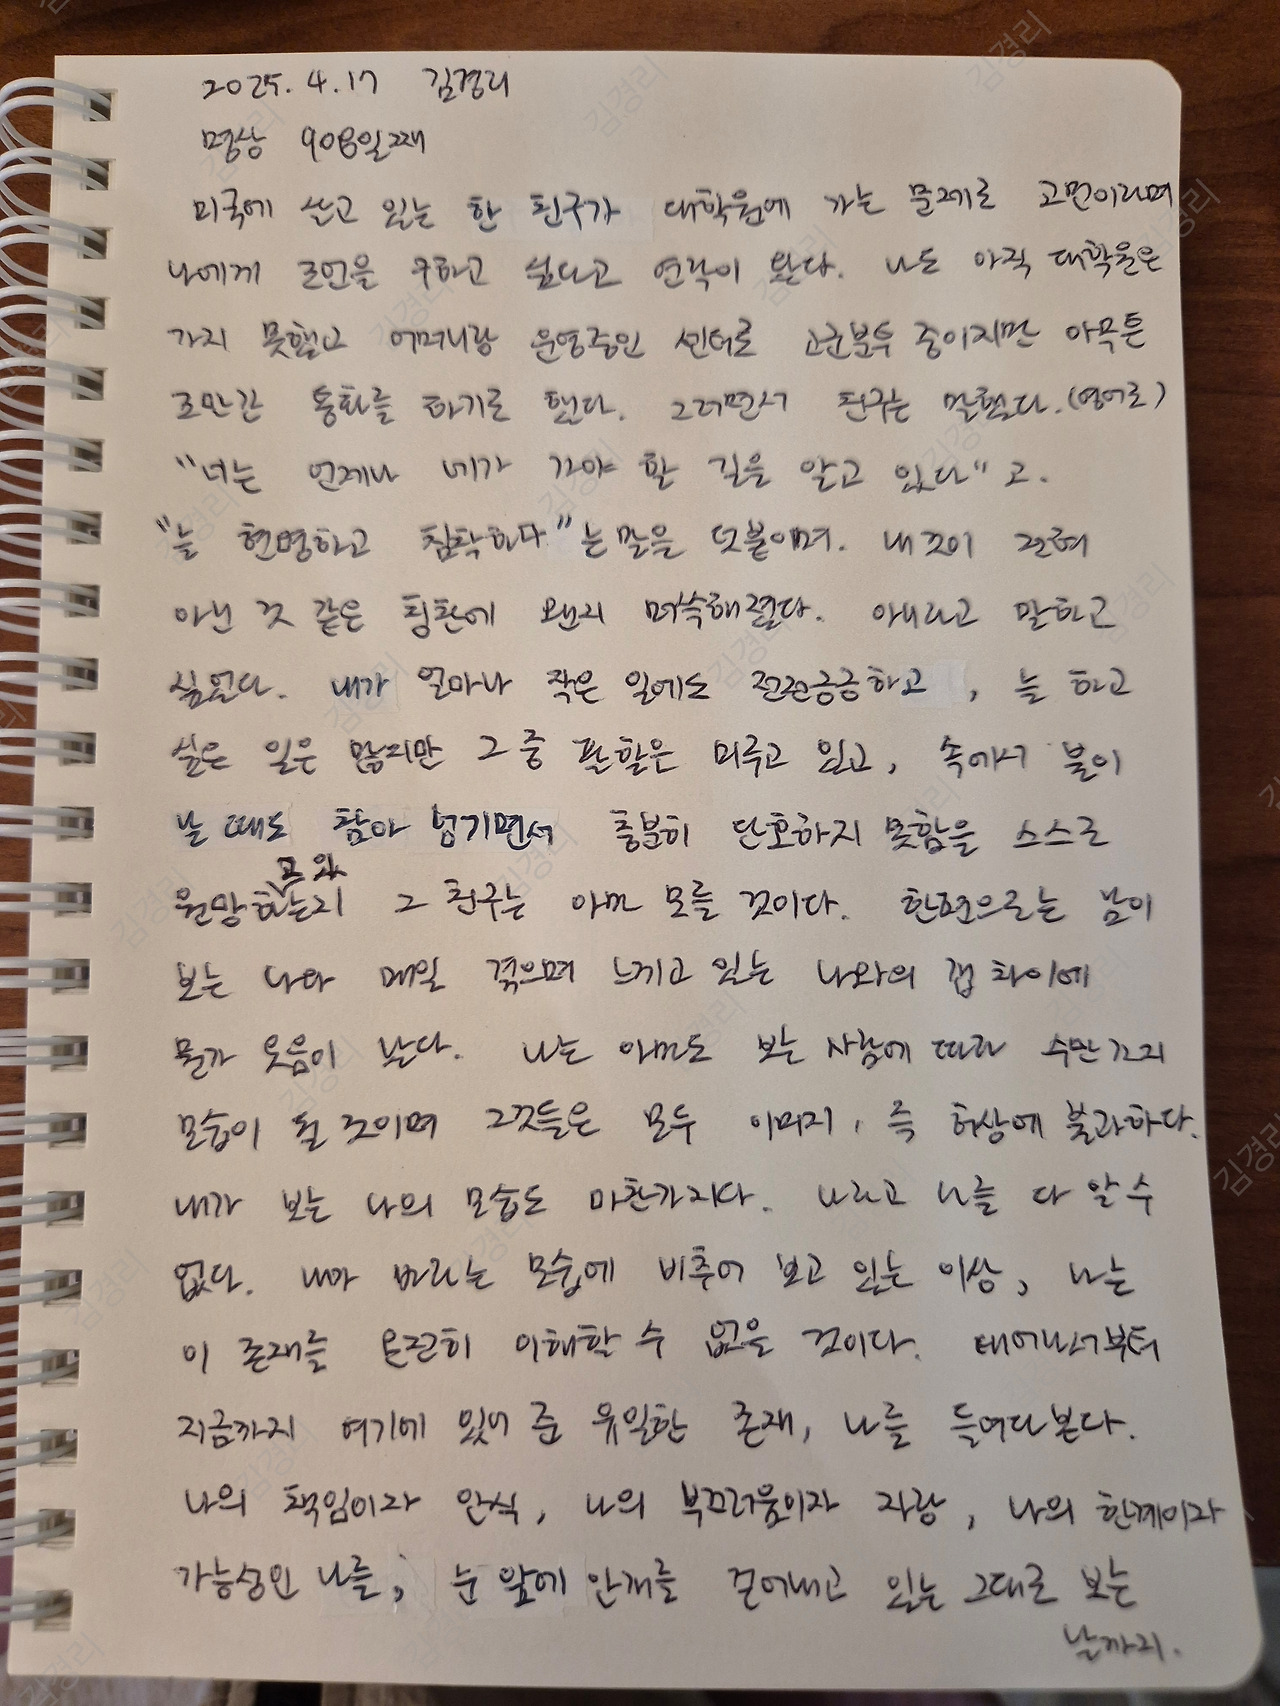 2025. 4. 17 김경리
명상 908일째
미국에 살고 있는 한 친구가 대학원에 가는 문제로 고민이라며
나에게 조언을 구하고 싶다고 연락이 왔다. 나도 아직 대학원은
가지 못했고 어머니랑 운영중인 센터로 고군분투 중이지만 아무튼
조만간 통화를 하기로 했다. 그러면서 친구는 말했다. (영어로)
"너는 언제나 네가 가야 할 길을 알고 있다"고.
"늘 현명하고 침착하다"는 말을 덧붙이며. 내 것이 전혀
아닌 것 같은 칭찬에 왠지 머쓱해졌다. 아니라고 말하고
싶었다. 내가 얼마나 작은 일에도 전전긍긍하고, 늘 하고
싶은 일은 많지만 그 중 팔할은 미루고 있고, 속에서 불이
날 때도 참아 넘기면서 충분히 단호하지 못함을 스스로
고 있
원망하는지 그 친구는 아마 모를 것이다. 한편으로는 남이
보는 나와 매일 겪으며 느끼고 있는 나와의 갭 차이에
뭔가 웃음이 났다. 나는 아마도 보는 사람에 따라 수만가지
모습이 될 것이며 그것들은 모두 이미지, 즉 허상에 불과하다.
내가 보는 나의 모습도 마찬가지다. 나라고 나를 다 알 수
없다. 내가 바라는 모습에 비추어 보고 있는 이상, 나는
이 존재를 온전히 이해할 수 없을 것이다. 태어나서부터
지금까지 여기에 있어 준 유일한 존재, 나를 들여다본다.
나의 책임이자 안식, 나의 부끄러움이자 자랑, 나의 한계이자
가능성인 나를, 눈 앞에 안개를 걷어내고 있는 그대로 보는
날까지.
김경리